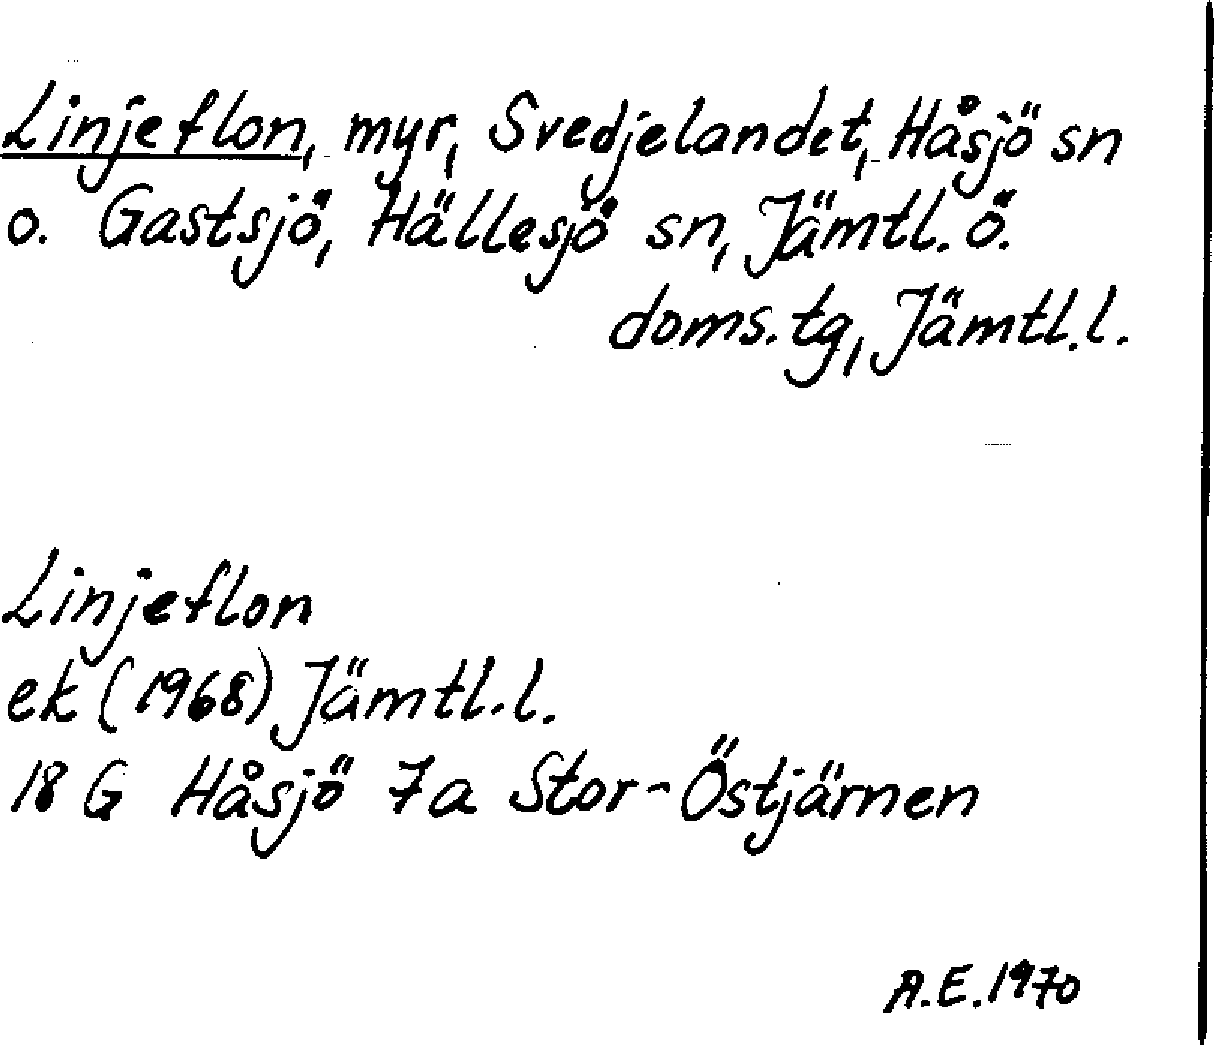 Linjeflon, myr, Svedjelandet, Håsjö sn
o. Gastsjö, Hällesjö sn, Jämtl. ö.
doms. tg, Jämtl. l.
Linjeflon
ek (1968) Jämtl. l.
18 G Håsjö 7a Stor-Östjärnen
A.E. 1970